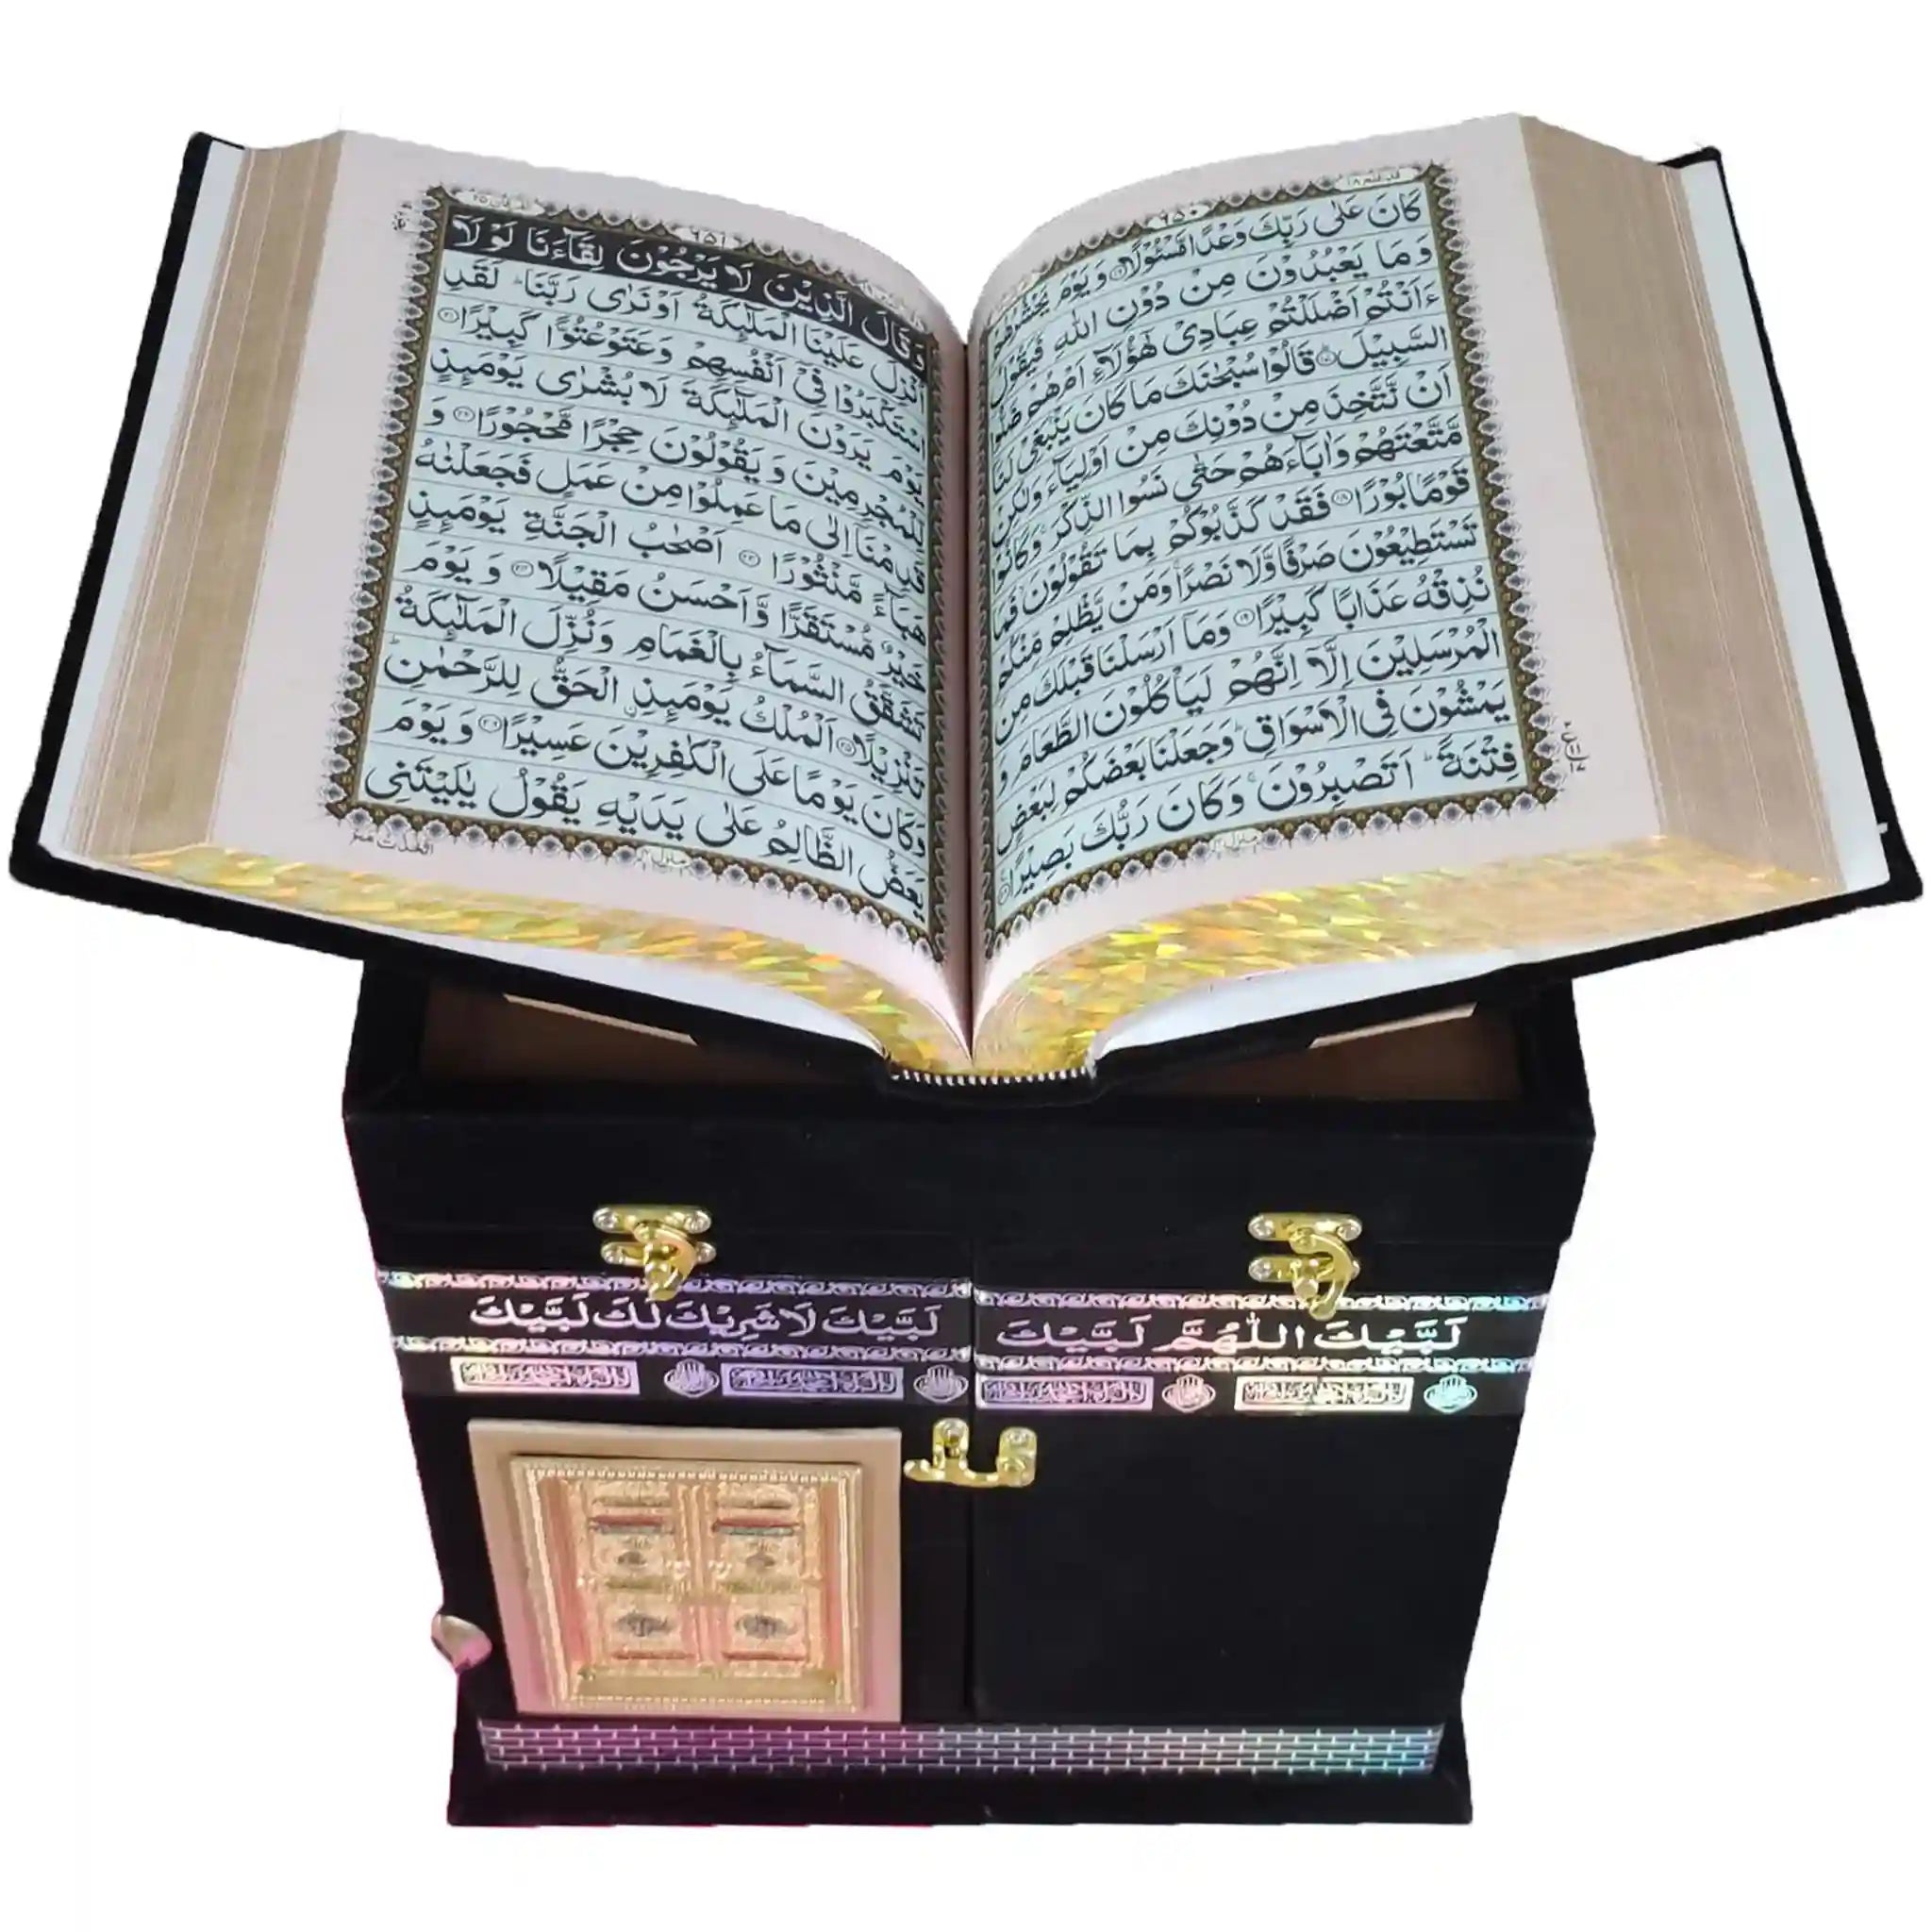 قد افلح ١٨
٦٥٠
كَانَ عَلٰى رَبِّكَ وَعْدًا مَّسْئُوْلًا ﴿۱۶﴾ وَيَوْمَ يَحْشُرُهُمْ
وَمَا يَعْبُدُوْنَ مِنْ دُوْنِ اللّٰهِ فَيَقُوْلُ
ءَاَنْتُمْ اَضْلَلْتُمْ عِبَادِىْ هٰٓؤُلَآءِ اَمْ هُمْ ضَلُّوا
السَّبِيْلَ ﴿۱۷﴾ قَالُوْا سُبْحٰنَكَ مَا كَانَ يَنْۢبَغِىْ لَنَآ
اَنْ نَّتَّخِذَ مِنْ دُوْنِكَ مِنْ اَوْلِيَآءَ وَلٰكِنْ
مَّتَّعْتَهُمْ وَاٰبَآءَهُمْ حَتّٰى نَسُوا الذِّكْرَ ۚ وَكَانُوْا
قَوْمًۢا بُوْرًا ﴿۱۸﴾ فَقَدْ كَذَّبُوْكُمْ بِمَا تَقُوْلُوْنَ فَمَا
تَسْتَطِيْعُوْنَ صَرْفًا وَّلَا نَصْرًا ۚ وَمَنْ يَّظْلِمْ مِّنْكُمْ
نُذِقْهُ عَذَابًا كَبِيْرًا ﴿۱۹﴾ وَمَآ اَرْسَلْنَا قَبْلَكَ مِنَ
الْمُرْسَلِيْنَ اِلَّآ اِنَّهُمْ لَيَاْكُلُوْنَ الطَّعَامَ وَ
يَمْشُوْنَ فِى الْاَسْوَاقِ ؕ وَجَعَلْنَا بَعْضَكُمْ لِبَعْضٍ
فِتْنَةً ؕ اَتَصْبِرُوْنَ ۚ وَكَانَ رَبُّكَ بَصِيْرًا ﴿۲۰﴾
٦٥١
وَقَالَ الَّذِيْنَ لَا يَرْجُوْنَ لِقَآءَنَا لَوْلَآ
اُنْزِلَ عَلَيْنَا الْمَلٰٓئِكَةُ اَوْ نَرٰى رَبَّنَا ؕ لَقَدِ
اسْتَكْبَرُوْا فِىْٓ اَنْفُسِهِمْ وَعَتَوْ عُتُوًّا كَبِيْرًا ﴿۲۱﴾
يَوْمَ يَرَوْنَ الْمَلٰٓئِكَةَ لَا بُشْرٰى يَوْمَئِذٍ
لِّلْمُجْرِمِيْنَ وَيَقُوْلُوْنَ حِجْرًا مَّحْجُوْرًا ﴿۲۲﴾ وَ
قَدِمْنَآ اِلٰى مَا عَمِلُوْا مِنْ عَمَلٍ فَجَعَلْنٰهُ
هَبَآءً مَّنْثُوْرًا ﴿۲۳﴾ اَصْحٰبُ الْجَنَّةِ يَوْمَئِذٍ
خَيْرٌ مُّسْتَقَرًّا وَّاَحْسَنُ مَقِيْلًا ﴿۲۴﴾ وَيَوْمَ
تَشَقَّقُ السَّمَآءُ بِالْغَمَامِ وَنُزِّلَ الْمَلٰٓئِكَةُ
تَنْزِيْلًا ﴿۲۵﴾ اَلْمُلْكُ يَوْمَئِذِ ۟الْحَقُّ لِلرَّحْمٰنِ ؕ
وَكَانَ يَوْمًا عَلَى الْكٰفِرِيْنَ عَسِيْرًا ﴿۲۶﴾ وَيَوْمَ
يَعَضُّ الظَّالِمُ عَلٰى يَدَيْهِ يَقُوْلُ يٰلَيْتَنِى
لَبَّيْكَ اللّٰهُمَّ لَبَّيْكَ
لَبَّيْكَ لَا شَرِيْكَ لَكَ لَبَّيْكَ